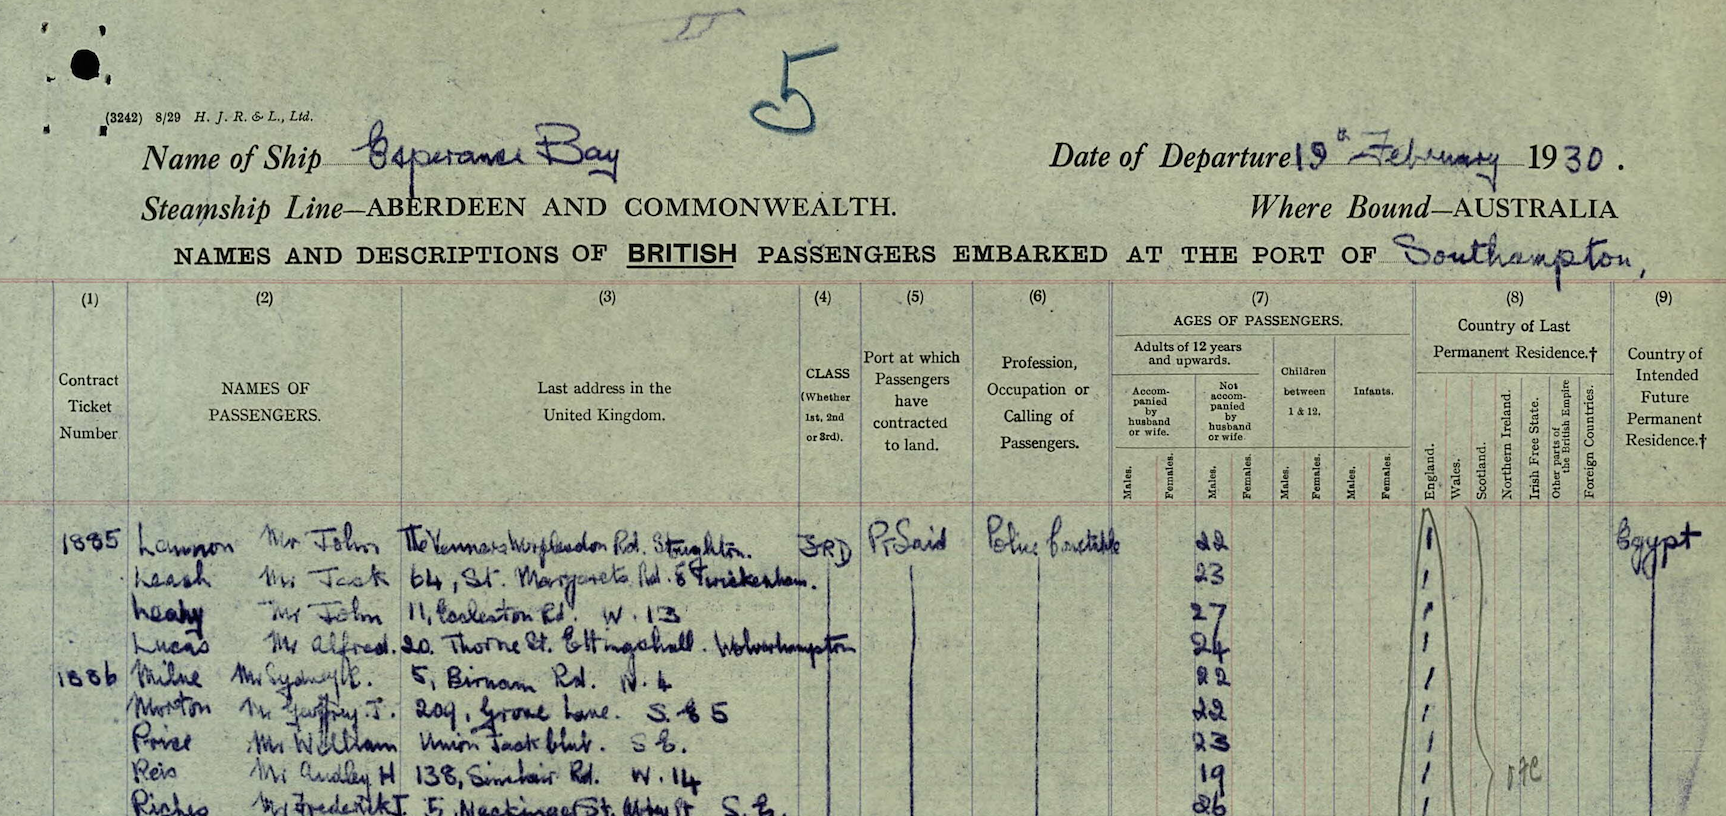 5
(3242) 8/29 H. J. R. & L., Ltd.
Name of Ship Esperance Bay Date of Departure 19th February 1930.
Steamship Line—ABERDEEN AND COMMONWEALTH. Where Bound—AUSTRALIA
NAMES AND DESCRIPTIONS OF BRITISH PASSENGERS EMBARKED AT THE PORT OF Southampton,
(1) (2) (3) (4) (5) (6) (7) (8) (9)
Contract Ticket Number
NAMES OF PASSENGERS.
Last address in the United Kingdom.
CLASS (Whether 1st, 2nd or 3rd).
Port at which Passengers have contracted to land.
Profession, Occupation or Calling of Passengers.
AGES OF PASSENGERS.
Adults of 12 years and upwards.
Accompanied by husband or wife.
Not accompanied by husband or wife
Children between 1 & 12.
Infants.
Males. Females. Males. Females. Males. Females. Males. Females.
Country of Last Permanent Residence.†
England. Wales. Scotland. Northern Ireland. Irish Free State. Other parts of the British Empire Foreign Countries.
Country of Intended Future Permanent Residence.†
1885 Mr John Worplesdon Rd. Stoughton. 3RD Pt Said Police Constable 22 1 Egypt
Leash Mr Jack 64, St. Margarets Rd. Twickenham. 23 1
Leahy Mr John 11, Eccleston Rd. W. 13 27 1
Lucas Mr Alfred. 20 Thorne St. Ettingshall. Wolverhampton 24 1
1886 Milne Mr Sydney 5, Birnam Rd. N. 4 22 1
Morton Mr Geoffrey J. 209, Grove Lane. S. E 5 22 1
Price Mr William Union Jack Club. S E. 23 1
Reis Mr Audley H 138, Sinclair Rd. W. 14 19 1
Riches Mr Frederick J. 5, St. S. E. 26 1